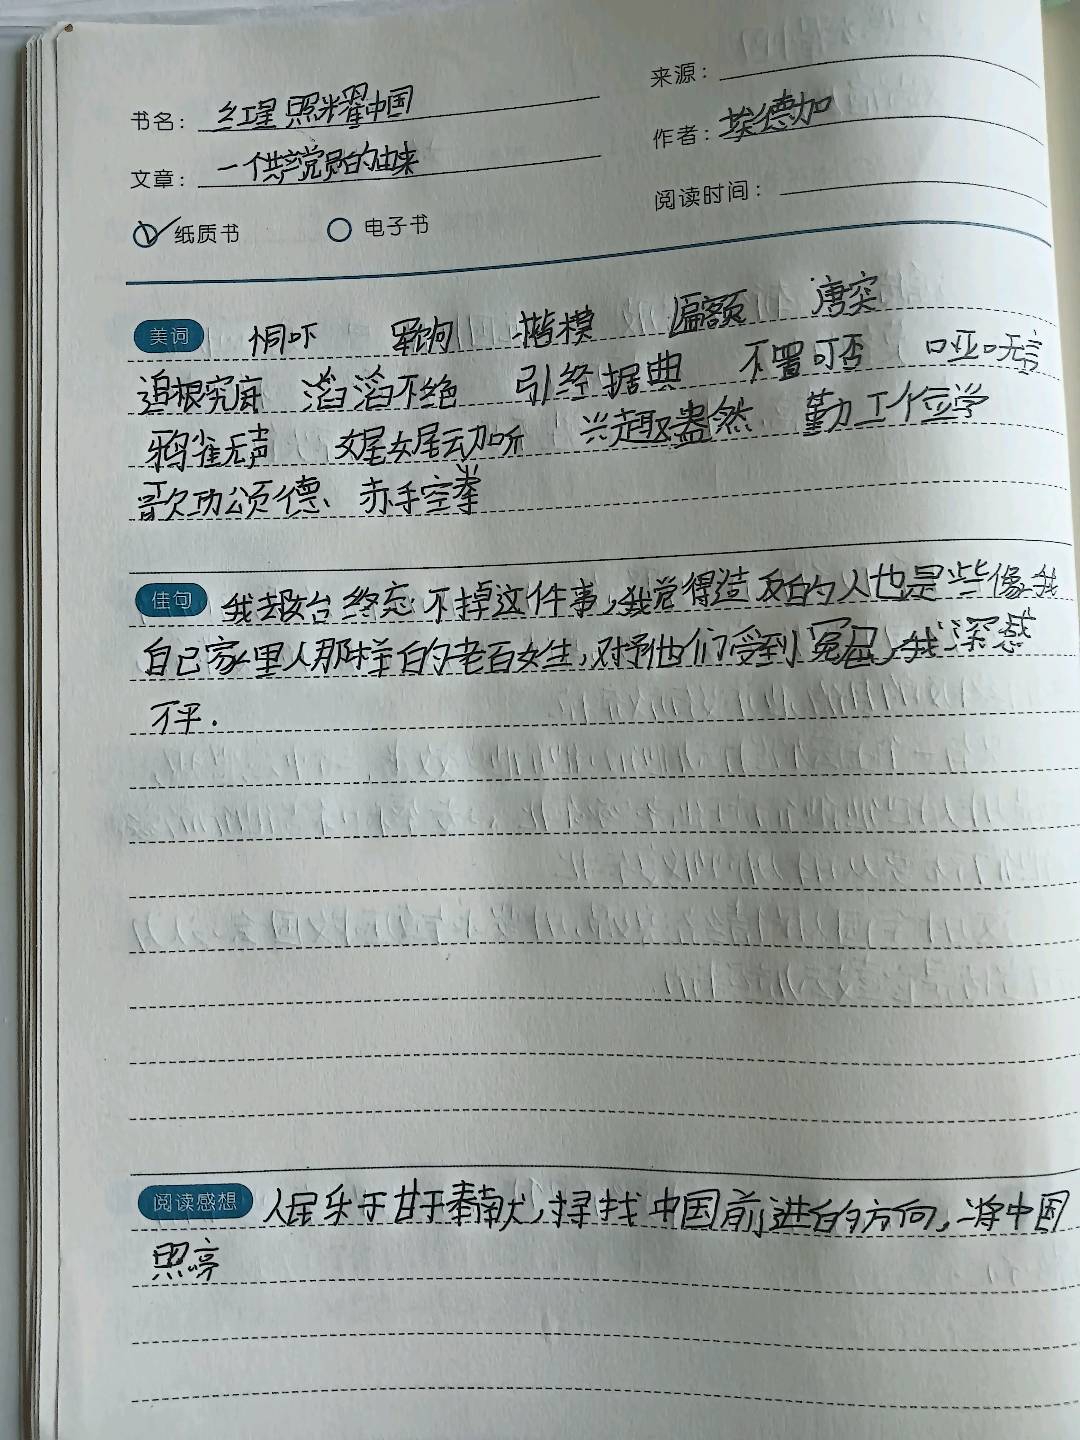 来源：
书名：红星照耀中国
作者：埃德加
文章：一个共产党员的由来
阅读时间：
纸质书 电子书
美词 恫吓 军饷 楷模 匾额 唐突
追根究底 滔滔不绝 引经据典 不置可否 哑口无言
鸦雀无声 娓娓动听 兴趣盎然 勤工俭学
歌功颂德、赤手空拳
佳句 我却始终忘不掉这件事，我觉得造反的人也是些像我
自己家里人那样的老百姓，对于他们受到冤屈，我深感
不平.
阅读感想 人民乐于甘于奉献，寻找中国前进的方向，将中国
照亮